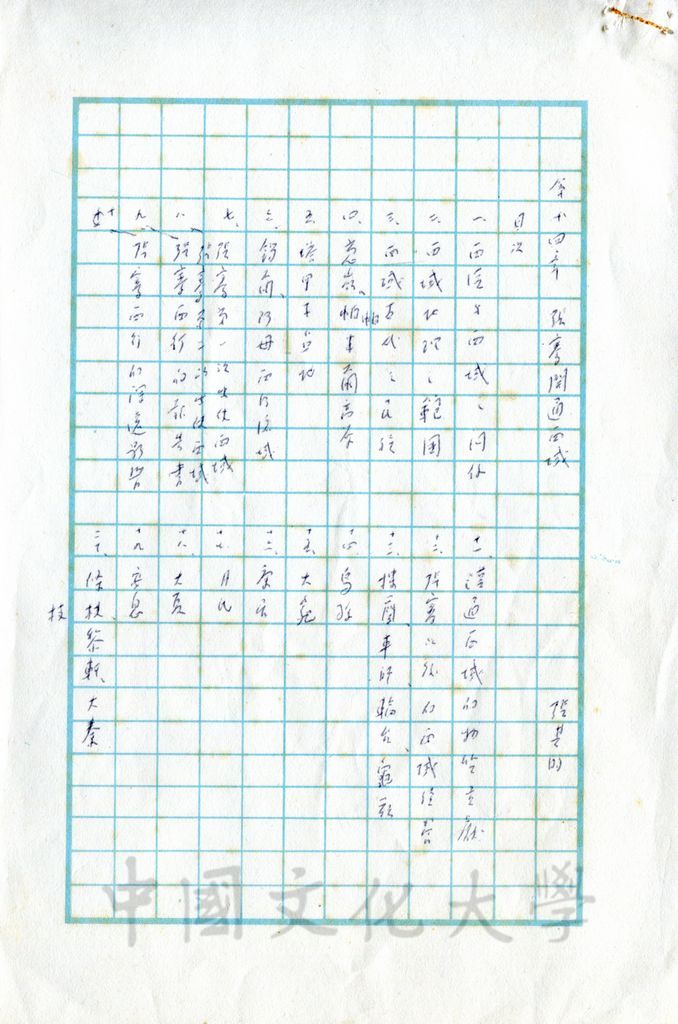 第十四章 張騫開通西域 張其昀
目次
一、西潘與西域之開化
二、西域地理之範圍
三、西域古代之民族
四、葱嶺、帕米爾高原
帕
五、塔里木盆地
六、錫爾、阿母兩河流域
七、張騫第一次出使西域
張騫第二次出使西域
八、張騫西行的報告書
九、張騫西行的深遠影響
十
十一、溝通西域的物質貢獻
十二、張騫以後的西域經營
十三、樓蘭、車師、輪台、龜茲
十四、烏孫
十五、大宛
十六、康居
十七、月氏
十八、大夏
十九、安息
二十、條枝、黎軒、大秦
枝
中國文化大學